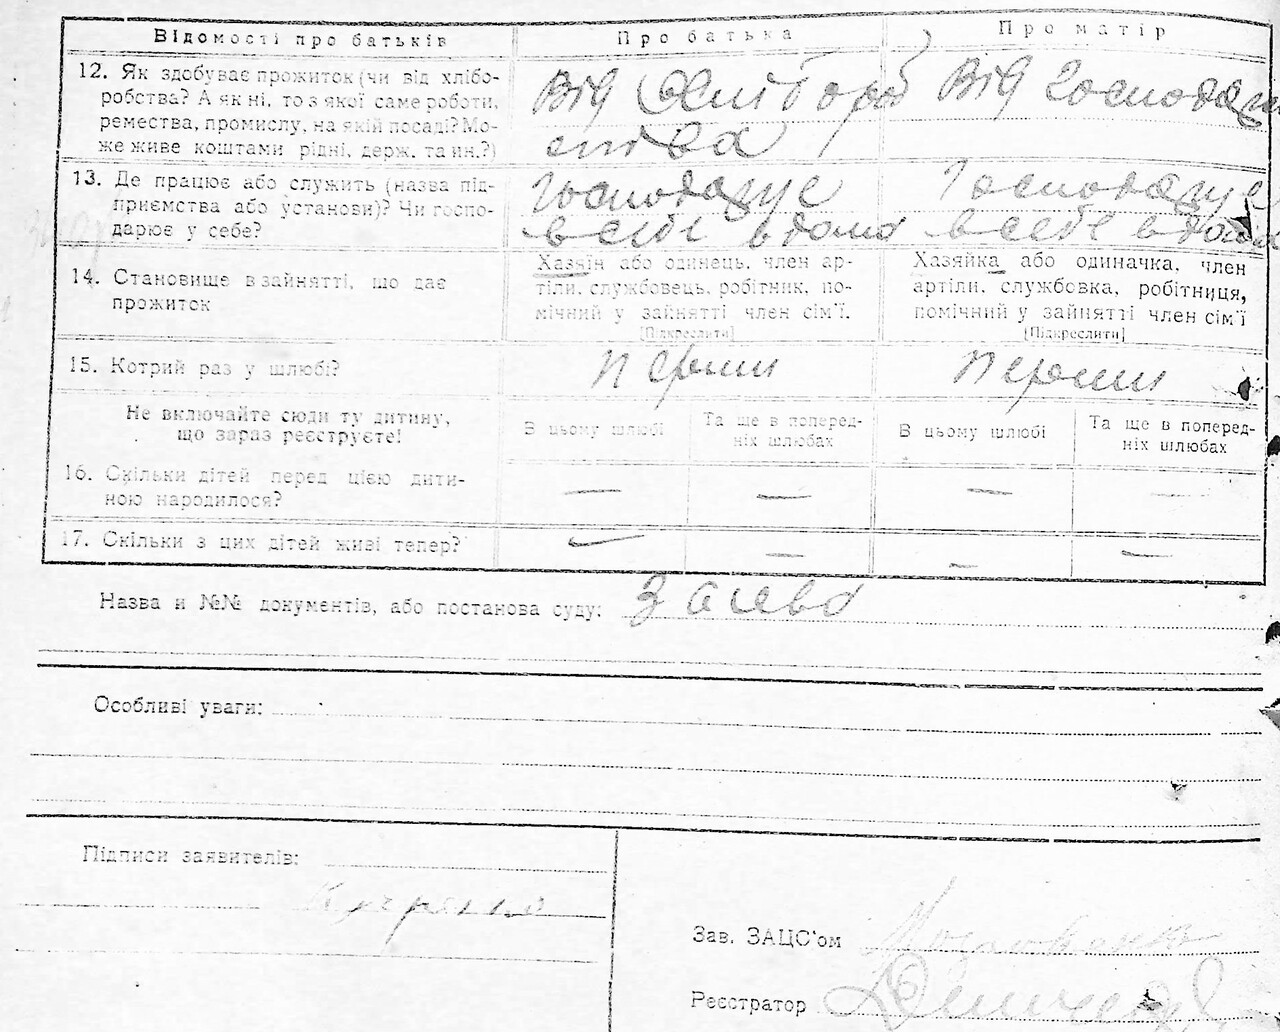 Відомості про батьків
Про батька
Про матір
12. Як здобуває прожиток (чи від хлібо-
робства? А як ні, то з якої саме роботи,
ремества, промислу, на якій посаді? Мо-
же живе коштами рідні, держ. та ин.?)
Від
Від Господар
13. Де працює або служить (назва під-
приємства або установи)? Чи госпо-
дарює у себе?
Господарує
в себе вдома
Господарує
в себе вдома
14. Становище в зайнятті, що дає
прожиток
Хазяїн або одинець, член ар-
тіли, службовець, робітник, по-
мічний у зайнятті член сім'ї.
[Підкреслити]
Хазяйка або одиначка, член
артіли, службовка, робітниця,
помічний у зайнятті член сім'ї
[Підкреслити]
15. Котрий раз у шлюбі?
перший
перший
Не включайте сюди ту дитину,
що зараз реєструєте!
В цьому шлюбі
Та ще в поперед-
ніх шлюбах
В цьому шлюбі
Та ще в поперед-
ніх шлюбах
16. Скільки дітей перед цією дити-
ною народилося?
— — — —
17. Скільки з цих дітей живі тепер?
— — — —
Назва и №№ документів, або постанова суду:
Особливі уваги:
Підписи заявителів:
Зав. ЗАЦС'ом
Реєстратор